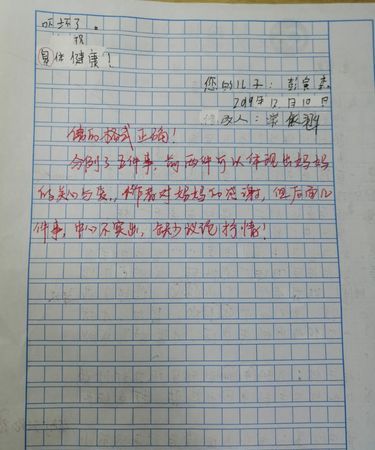 坏了。
祝
身体健康！
您的儿子：彭寅
2019年12月10日
修改人：宋
信的格式正确！
分别了五件事，前两件可以体现出妈妈
的关心与爱，作者对妈妈的感谢，但后面几
件事，中心不突出，缺少议论抒情！